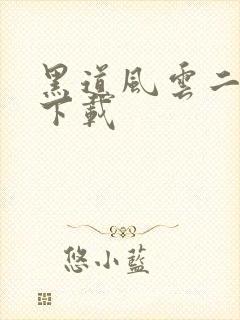 黑道風雲二
下載
悠小藍